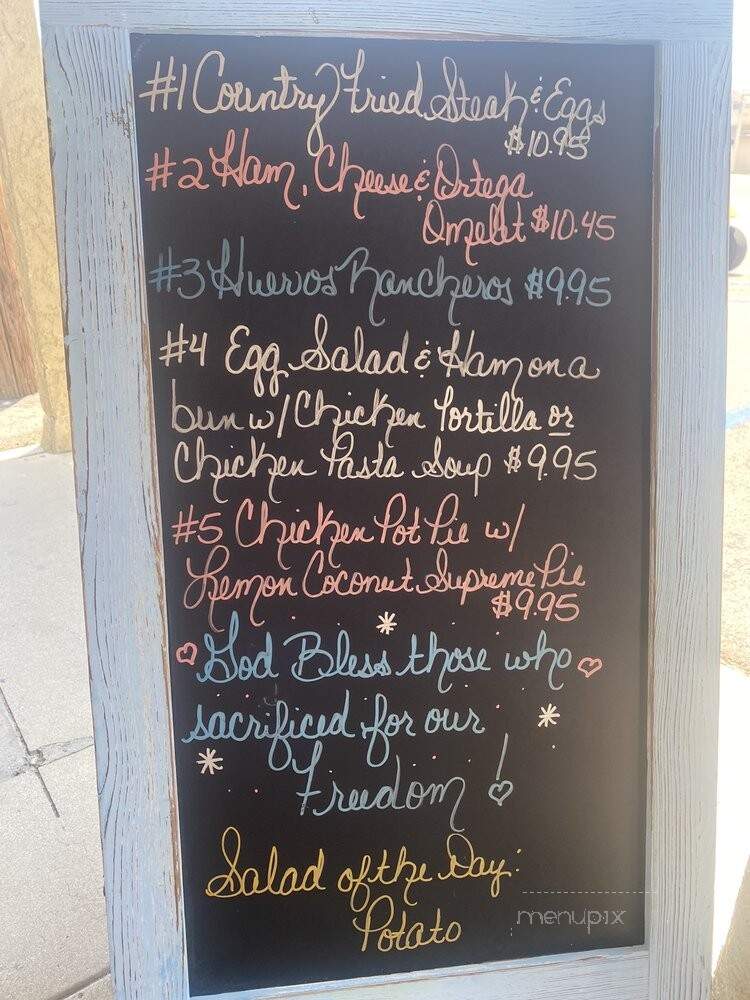 #1 Country Fried Steak & Eggs
$10.95
#2 Ham, Cheese & Ortega
Omelet $10.45
#3 Huevos Rancheros $9.95
#4 Egg Salad & Ham on a
bun w/ Chicken Tortilla or
Chicken Pasta Soup $9.95
#5 Chicken Pot Pie w/
Lemon Coconut Supreme Pie
$9.95
God Bless those who
sacrificed for our
Freedom!
Salad of the Day:
Potato
menupix